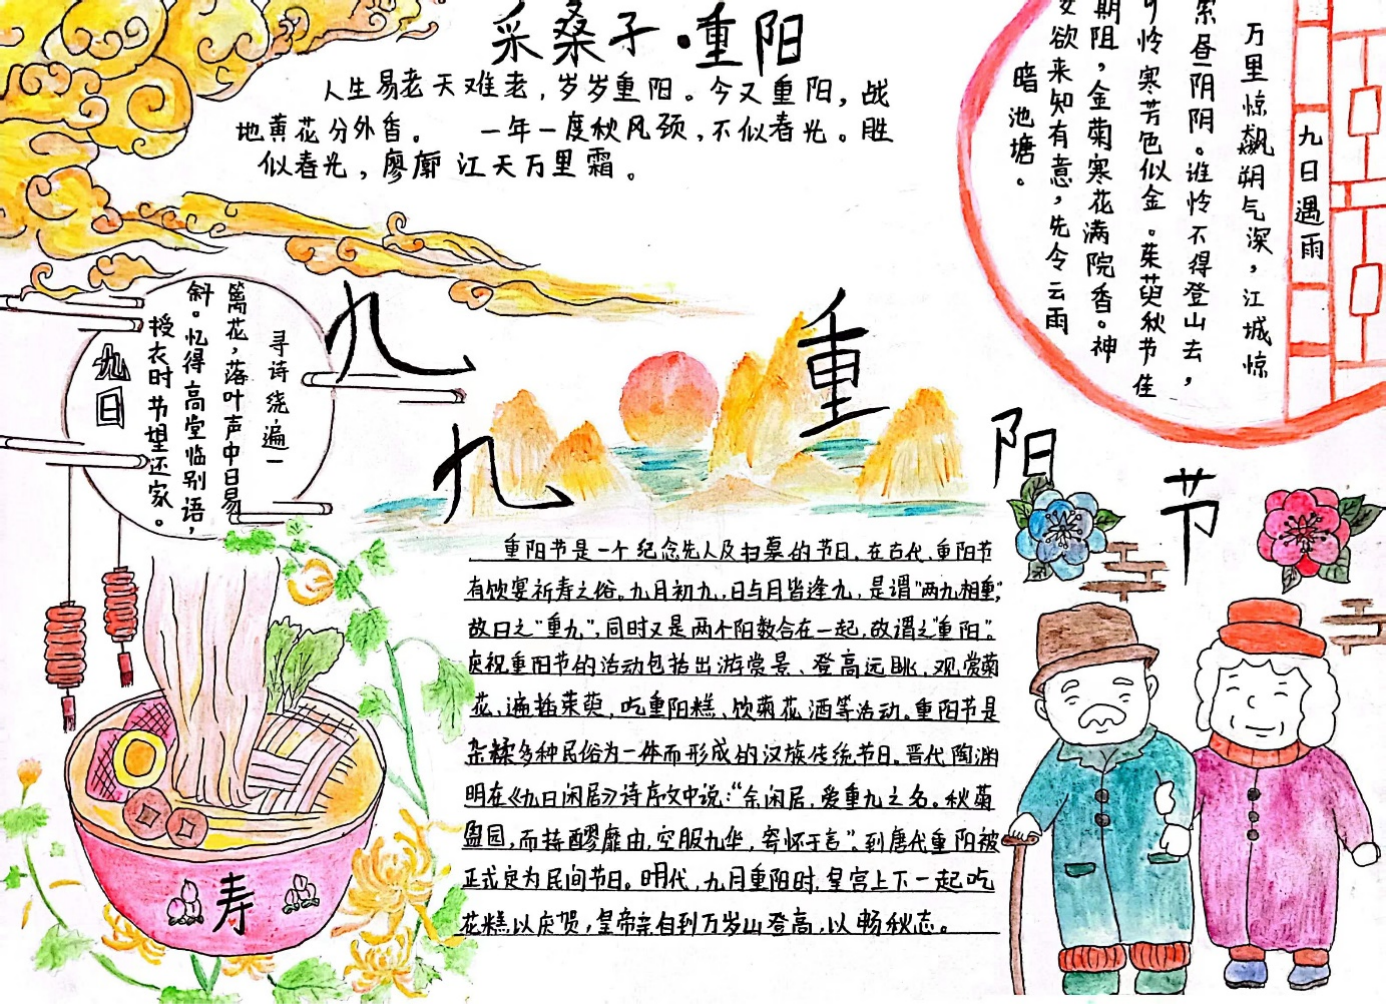 采桑子·重阳
人生易老天难老，岁岁重阳。今又重阳，战
地黄花分外香。 一年一度秋风颈，不似春光。胜
似春光，廖廓江天万里霜。
九日遇雨
万里惊飙朔气深，江城惊
索昼阴阴。谁怜不得登山去，
可怜寒芳色似金。茱萸秋节佳
期阻，金菊寒花满院香。神
女欲来知有意，先令云雨
暗池塘。
九日
寻诗绕遍一
篱花，落叶声中日易
斜。忆得高堂临别语，
授衣时节望还家。
九九重阳节
重阳节是一个纪念先人及扫墓的节日，在古代，重阳节
有饮宴祈寿之俗。九月初九，日与月皆逢九，是谓"两九相重"，
故曰之"重九"，同时又是两个阳数合在一起，故谓之"重阳"。
庆祝重阳节的活动包括出游赏景、登高远眺、观赏菊
花、遍插茱萸，吃重阳糕、饮菊花酒等活动。重阳节是
杂糅多种民俗为一体而形成的汉族传统节日。晋代陶渊
明在《九日闲居》诗序文中说："余闲居，爱重九之名。秋菊
盈园，而持醪靡由，空服九华，寄怀于言"。到唐代重阳被
正式定为民间节日。明代，九月重阳时，皇宫上下一起吃
花糕以庆贺，皇帝亲自到万岁山登高，以畅秋志。
寿